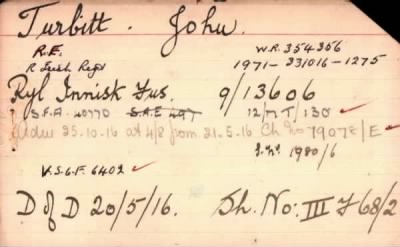 Turbitt. John.
R.E. W.R. 354356
R Irish Regt 1971-231016-1275
Ryl Innisk Fus. 9/13606
S.F.A. 40770 S.A.E 497 12/MT/130 ✓
25.10.16 at 4/8 from 21.5.16 Ch No 7907E/E ✓
1980/6
V.S.G.F 6402 ✓
D of D 20/5/16. Sh. No: III F 68/2